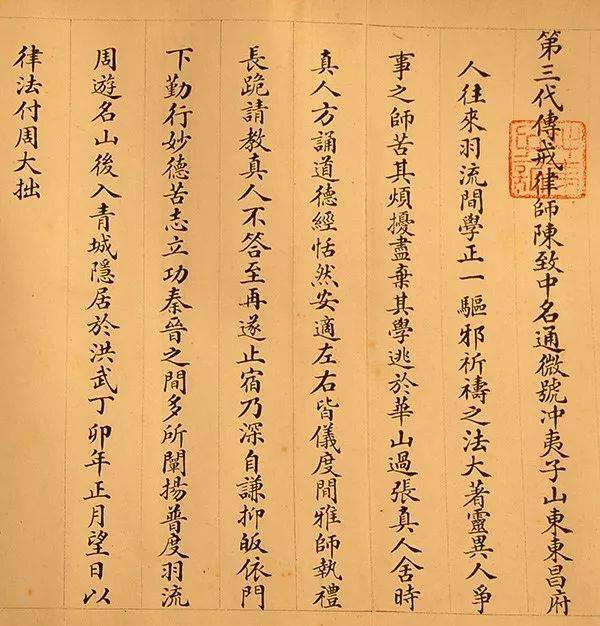 第三代傳戒律師陳致中名通微號冲夷子山東東昌府
人往來羽流間學正一驅邪祈禱之法大著靈異人爭
事之師苦其煩擾盡棄其學逃於華山過張真人舍時
真人方誦道德經恬然安適左右皆儀度閒雅師執禮
長跪請教真人不答至再遂止宿乃深自謙抑皈依門
下勤行妙德苦志立功秦晉之間多所闡揚普度羽流
周遊名山後入青城隱居於洪武丁卯年正月望日以
律法付周大拙